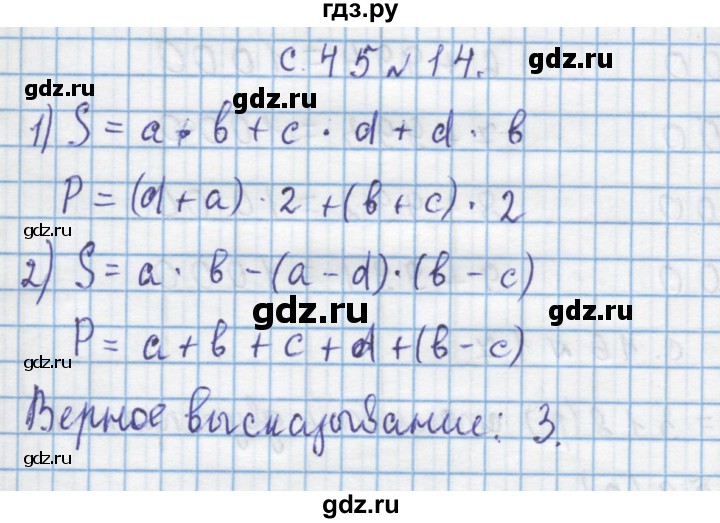 гдз.ру
с. 45 № 14.
gdz.ru
gdz.ru
gdz.ru
1) S = a · в + c · d + d · в
P = (d + a) · 2 + (в + c) · 2
gdz.ru
gdz.ru
2) S = a · в - (a - d) · (в - c)
gdz.ru
gdz.ru
P = a + в + c + d + (в - c)
gdz.ru
Верное высказывание: 3.
gdz.ru
gdz.ru
gdz.ru